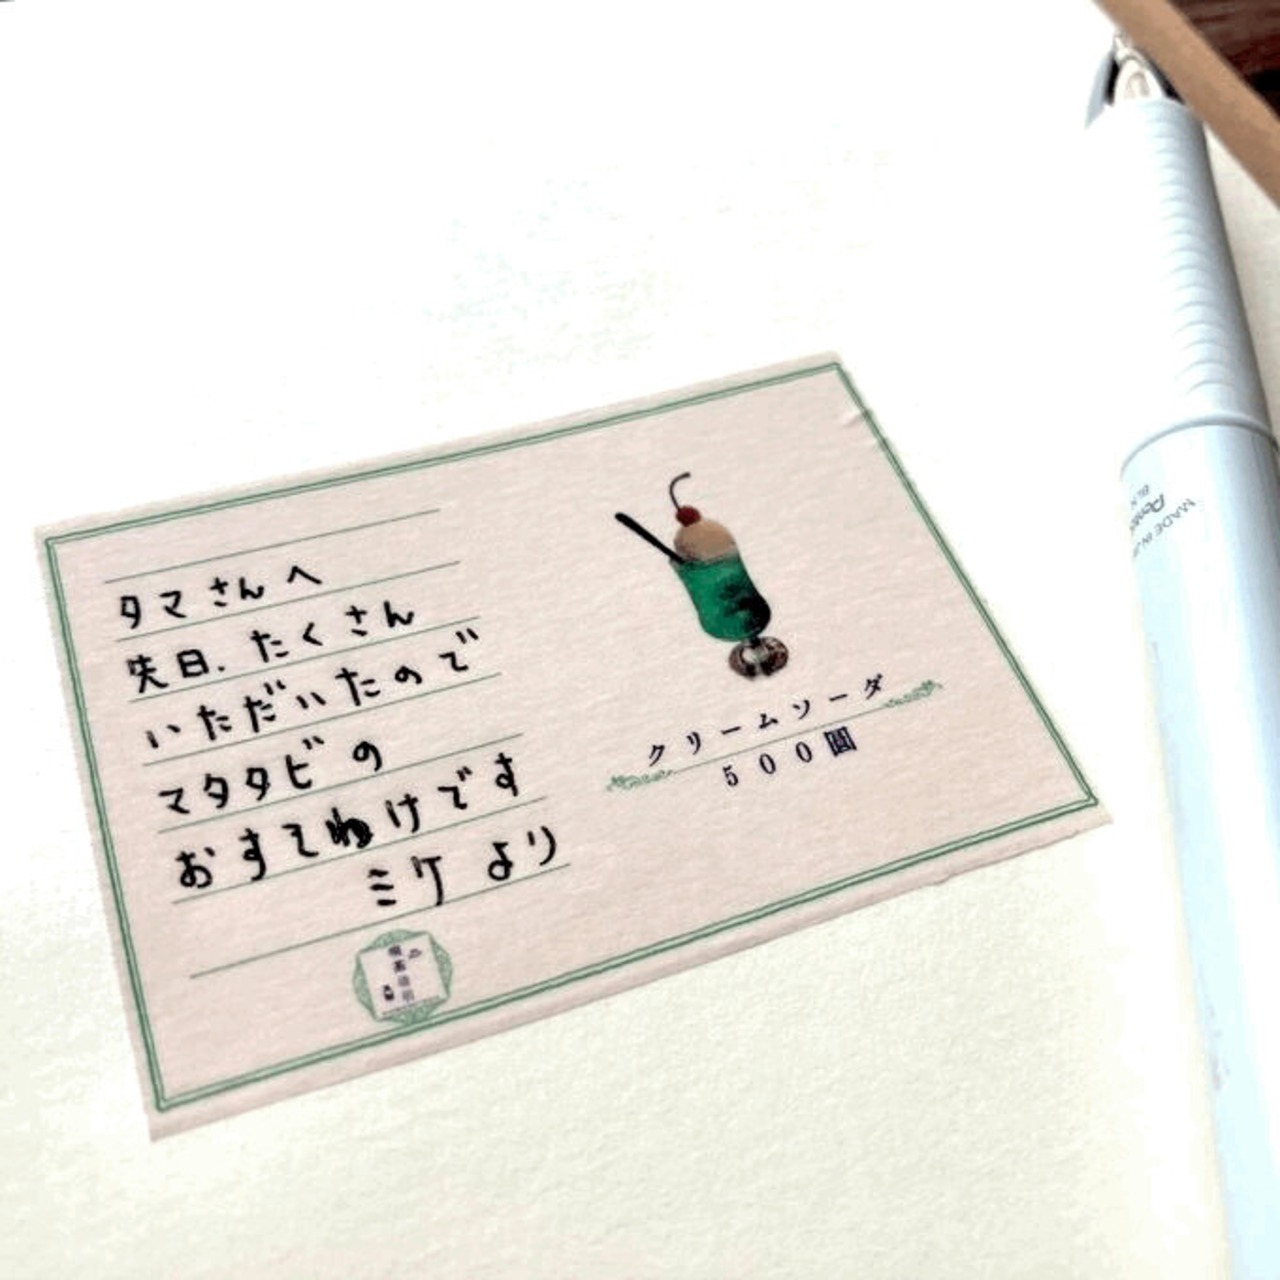 タマさんへ
先日、たくさん
いただいたので
マタタビの
おすそわけです
ミケより
クリームソーダ
500圓
MADE IN